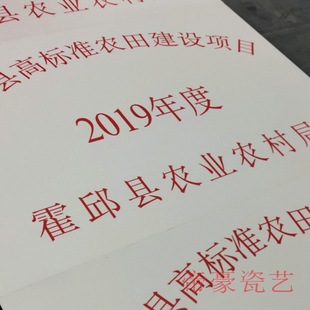 县农业农村
县高标准农田建设项目
2019年度
霍邱县农业农村局
县高标准农田
豪瓷艺